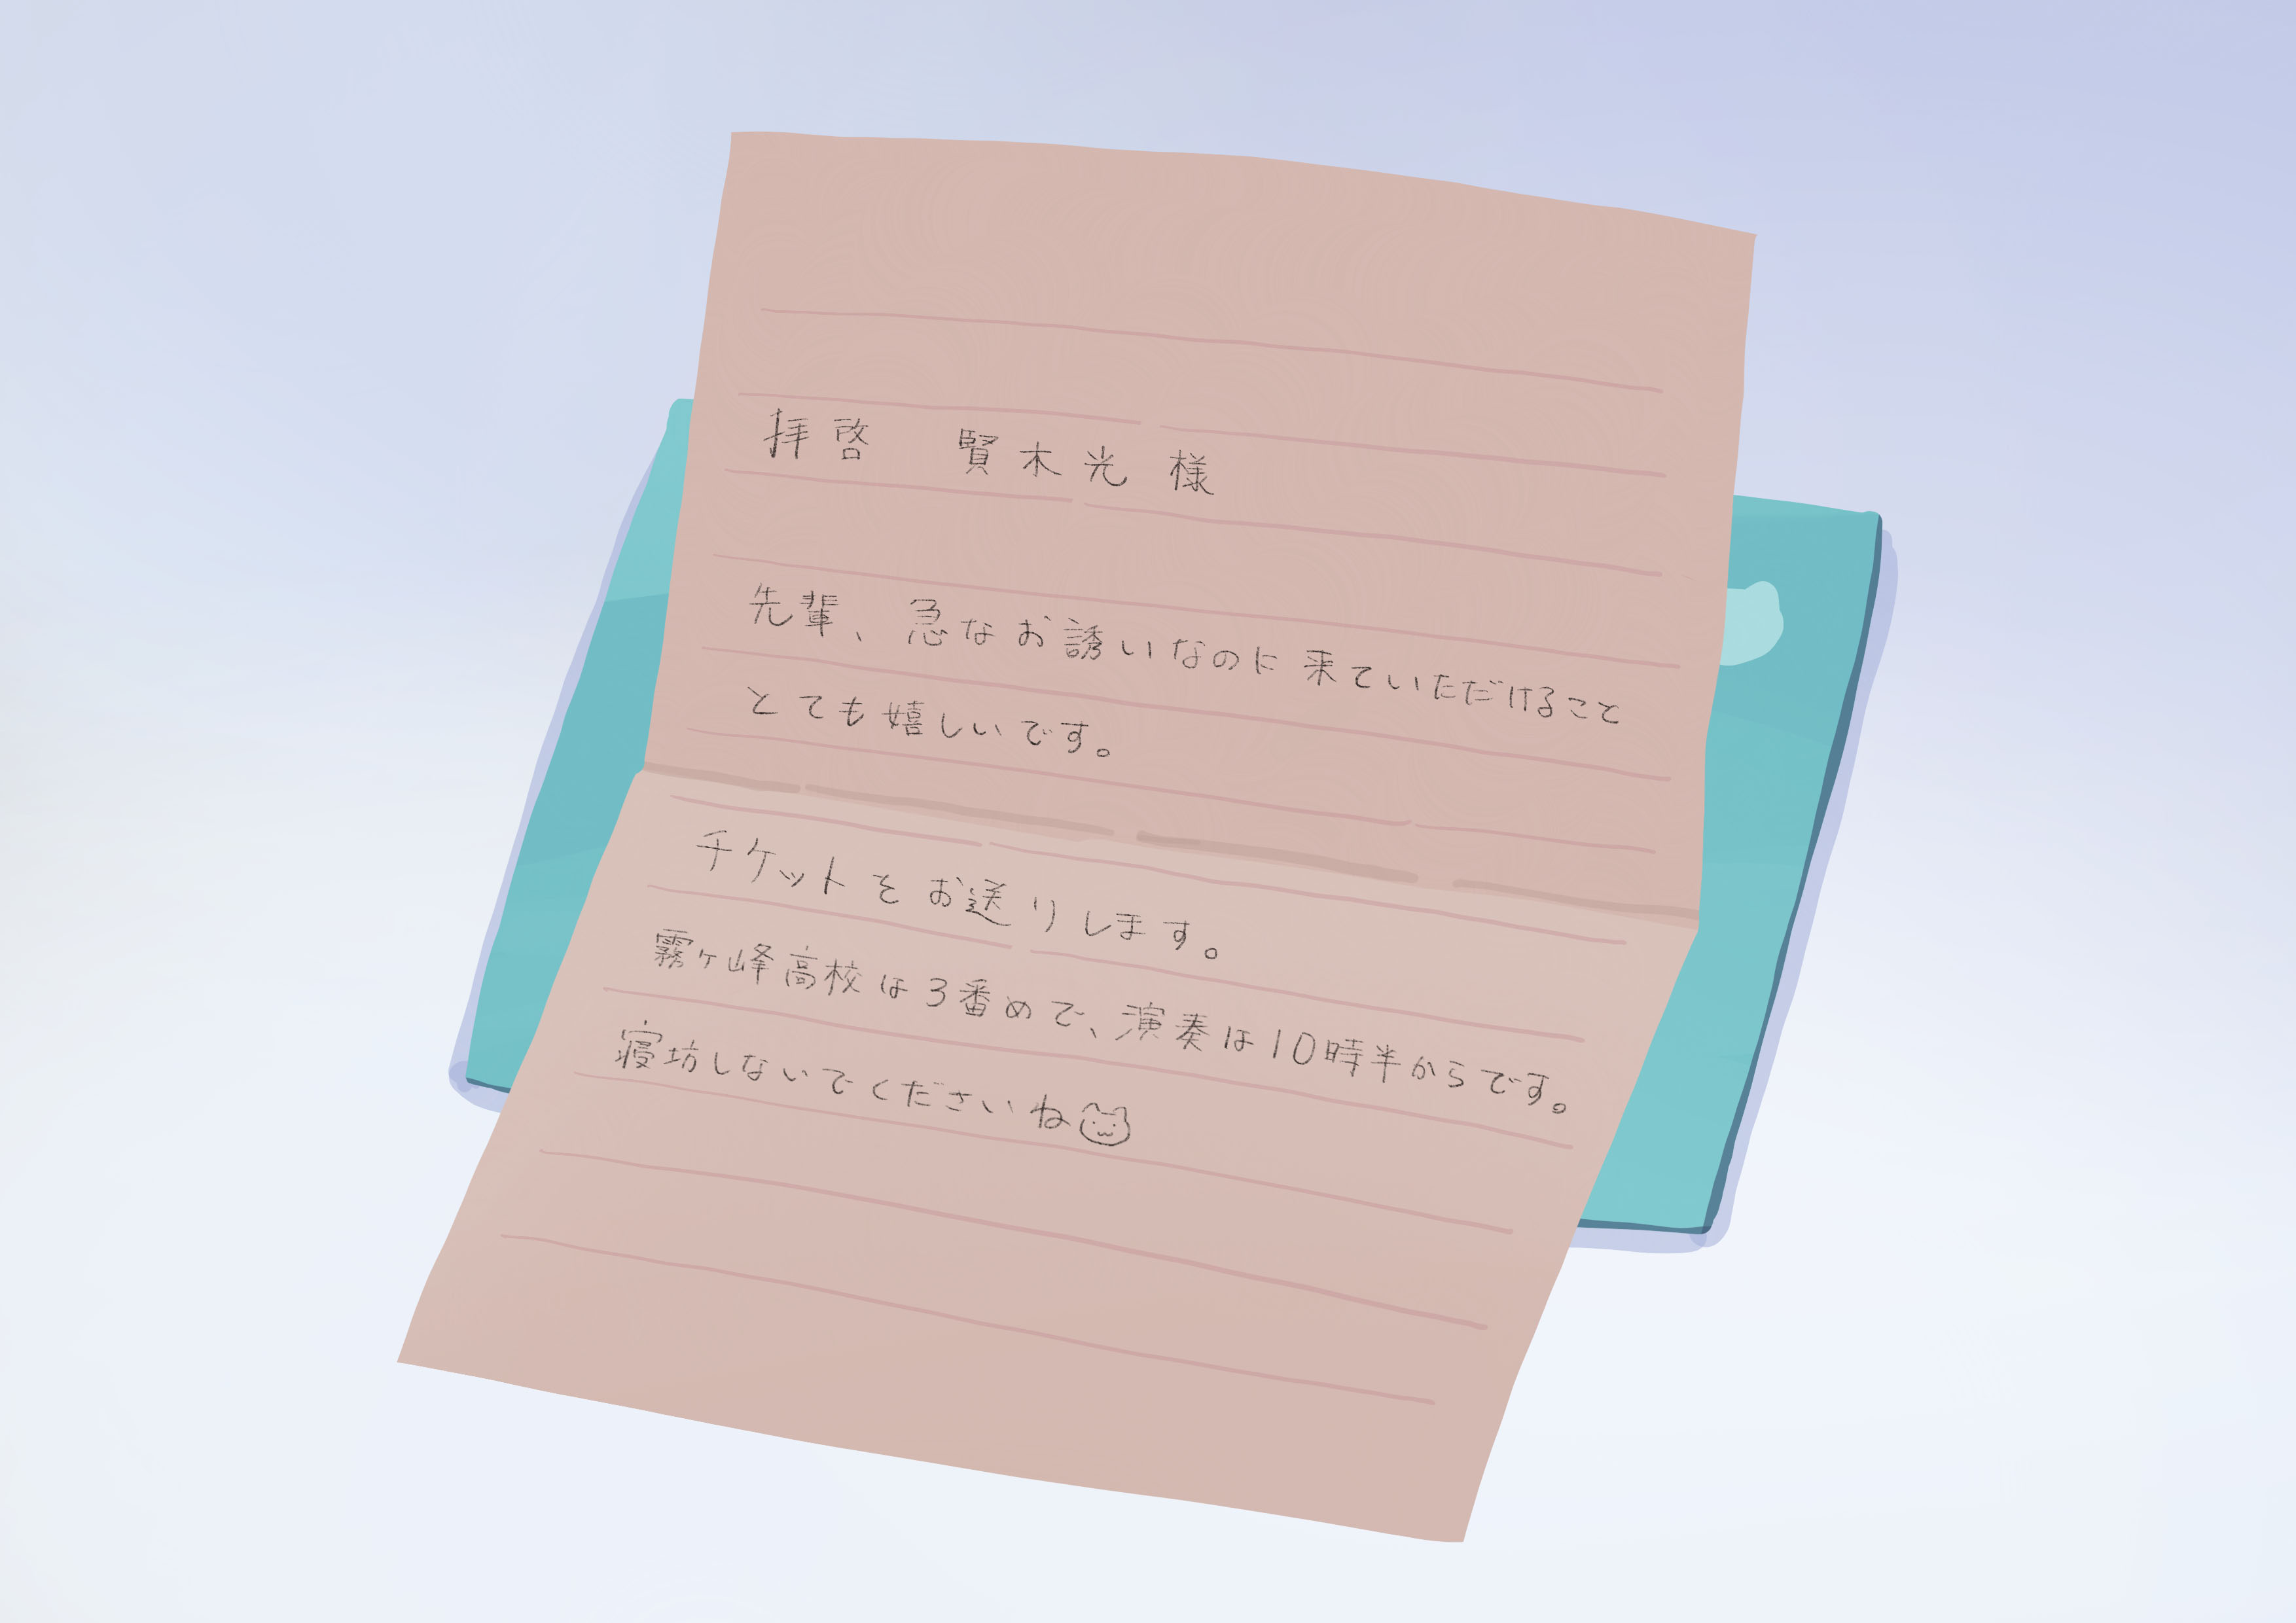 拝啓　賢木光 様
先輩、急なお誘いなのに来ていただけること
とても嬉しいです。
チケットをお送りします。
霧ヶ峰高校は3番めで、演奏は10時半からです。
寝坊しないでくださいね